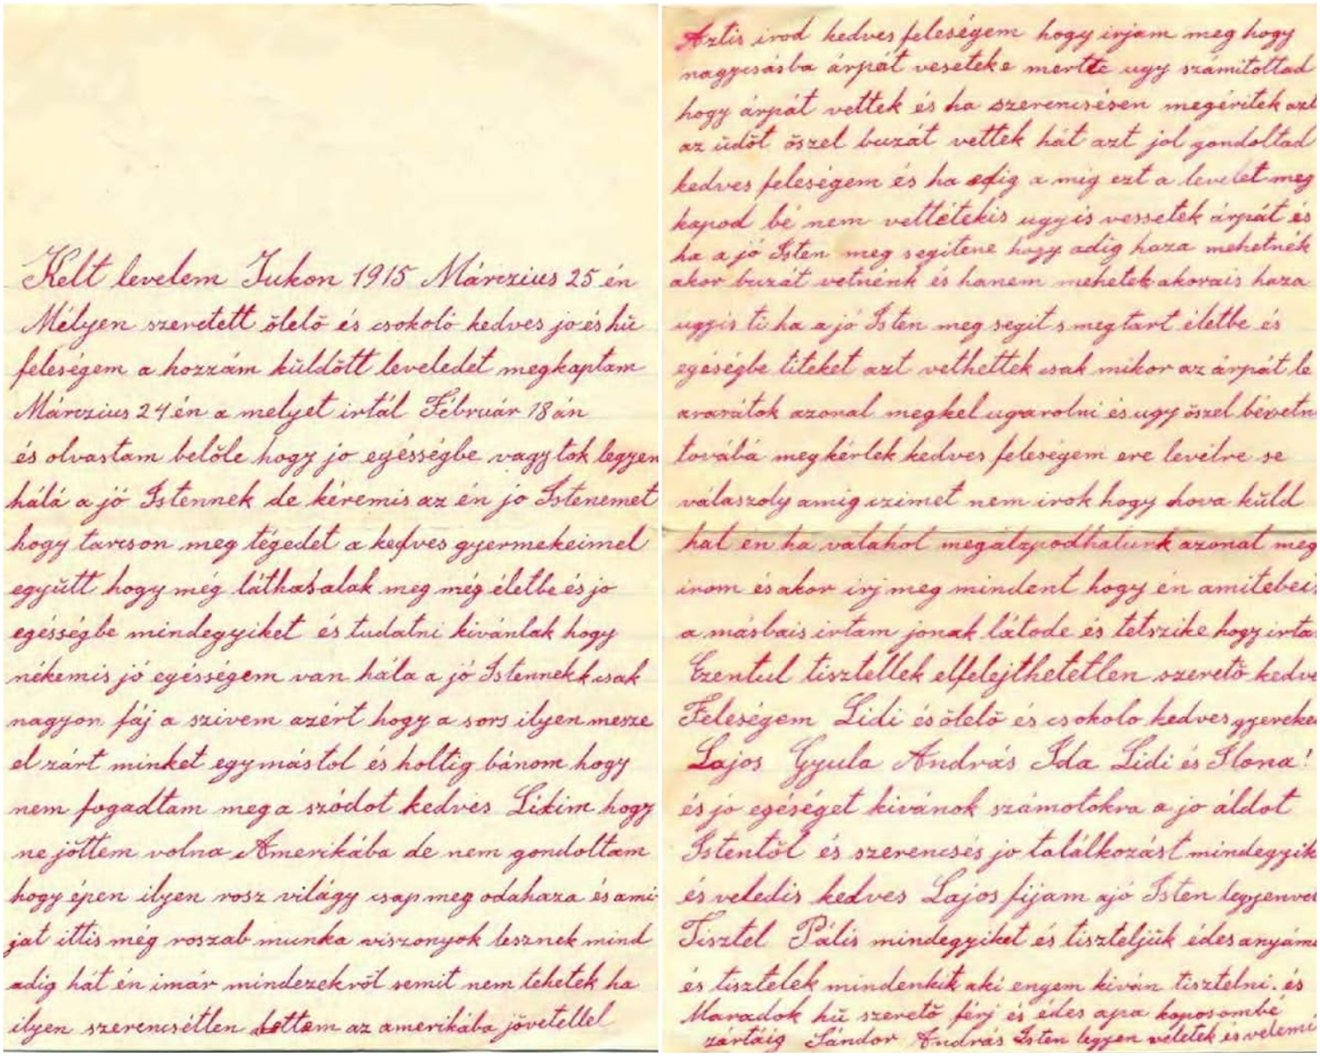 Kelt levelem Yukon 1915 Márczius 25 én
Mélyen szeretett ölelö és csokoló kedves jo és hü
feleségem a hozzám küldött leveledet megkaptam
Márczius 24 én a melyet irtál Február 18 án
és olvastam belöle hogy jo egésségbe vagytok legyen
hálá a jó Istennek de kéremis az én jo Istenemet
hogy tarcson meg tégedet a kedves gyermekeimel
együtt hogy még láthasalak meg még életbe és jo
egésségbe mindegyiket és tudatni kivánlak hogy
nékemis jó egésségem van hála a jó Istennekk csak
nagyon fáj a szivem azért hogy a sors ilyen mesze
el zárt minket egymástol és holtig bánom hogy
nem fogadtam meg a szódot kedves Lidim hogy
ne jöttem volna Amerikába de nem gondoltam
hogy épen ilyen rosz világy csap meg odahaza és ami
jat ittis még roszab munka viszonyok lesznek mind
adig hát én imár mindezekröt semit nem tehetek ha
ilyen szerencsétlen lettem az amerikába jövetellel
Aztis irod kedves feleségem hogy irjam meg hogy
nagycsásba árpát veseteke mertte ugy számitottad
hogy árpát vettek és ha szerencsésen megéritek azt
az üdöt öszel buzát vettek hát azt jol gondoltad
kedves feleségem és ha edig a mig ezt a levelet meg
kapod bé nem vettétekis ugyis vessetek árpát és
ha a jó Isten meg segitene hogy adig haza mehetnék
akor buzát vetnénk és hanem mehetek akorais haza
ugyis ti ha a jó Isten meg segit s megtart életbe és
egéségbe titeket azt vethettek csak mikor az árpát le
ararátok azonal megkel ugarolni és ugy öszel bévetn
továbá megkérlek kedves feleségem ere levélre se
válaszoly amig czimet nem irok hogy hova küld
hat én ha valahol megálzpodhatunk azonal meg
irom és akor irj meg mindent hogy én amitebei
a másbais irtam jonak látode és tetszike hogy irta
Ezentul tisztellek elfelejthetetlen szeretö kedve
Feleségem Lidi és ölelö és csokolo kedves gyereke
Lajos Gyula András Ida Lidi és Ilona!
és jó egéséget kivánok számotokra a jo áldot
Istentöl és szerencsés jo találkozást mindegyik
és veledis kedves Lajos fijam ajó Isten legyenvel
Tisztel Pális mindegyiket és tiszteljük édesanyám
és tisztelek mindenkit aki engem kiván tisztelni. és
Maradok hü szeretö férj és édes apa koposombé
zártáig Sándor András Isten legyen veletek és velemi